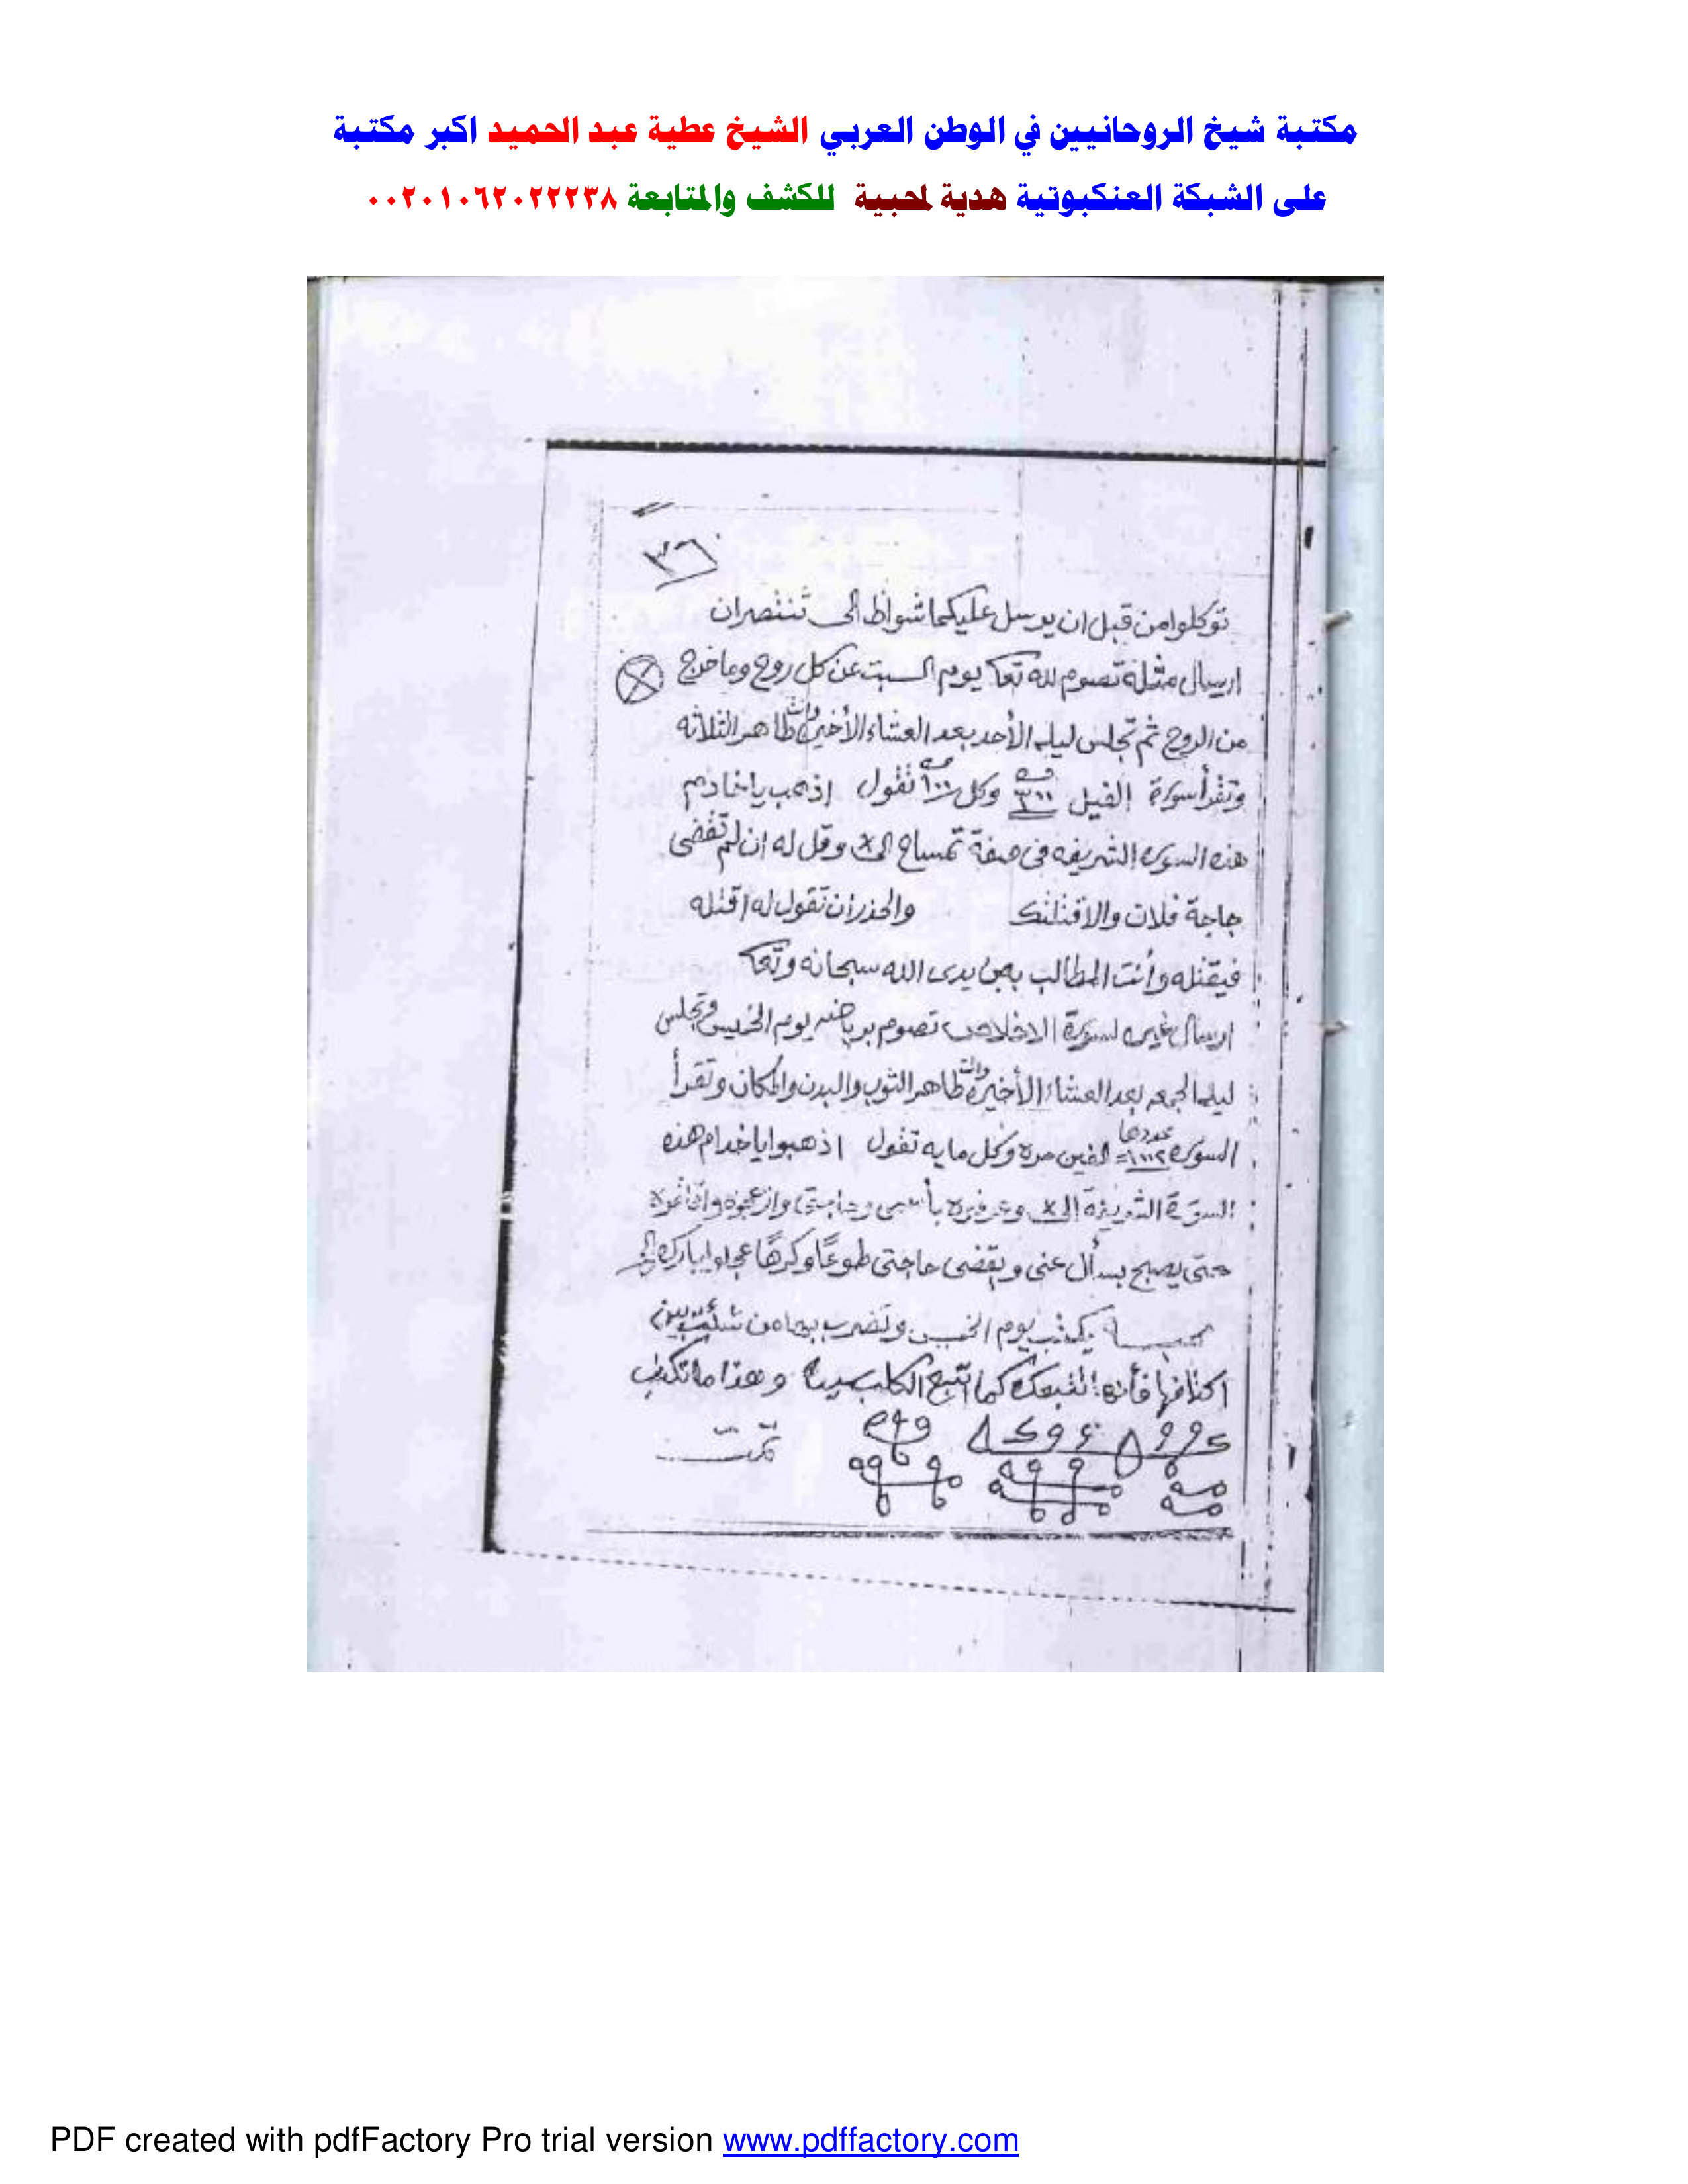 مكتبة شيخ الروحانيين في الوطن العربي الشيخ عطية عبد الحميد اكبر مكتبة
على الشبكة العنكبوتية هدية لمحبية للكشف والمتابعة ٠٠٢٠١٠٦٢٠٢٢٢٣٨
٣٦
توكلوا من قبل ان يرسل عليكما شواظ الى تنتصران
ارسال مثله تصوم لله تعا يوم السبت عن كل روح وما خرج
من الروح ثم تجلس ليله الأحد بعد العشاء الأخيرة وانت طاهر الثلاثه
وتقرأ سورة الفيل ٣٠٠ وكل ١٠٠ تقول اذهب ياخادم
هذه السوره الشريفه فى صفة تمساح الى x وقل له ان لم تقضى
حاجة فلان والا قتلتك والحذر ان تقول له اقتله
فيقتله وأنت المطالب بين يدى الله سبحانه وتعا
ارسال غيره لسورة الاخلاص تصوم برياضه يوم الخميس وتجلس
ليلة الجمعه بعد العشاء الأخيرة وانت طاهر الثوب والبدن والمكان وتقرأ
السوره عددها ١٠٠٢ الفين مره وكل مايه تقول اذهبوا ياخدام هذه
السورة الشريفة الى x بأسمى وحاجتى وازعجوه
حتى يصبح يسأل عنى ويقضى حاجتى طوعًا وكرهًا
يكتب يوم الخميس وتضرب بها من شئت بين
اكتافها فأنها تتبعك كما اتبع الكلب وهذا ما تكتب
تمت
PDF created with pdfFactory Pro trial version www.pdffactory.com